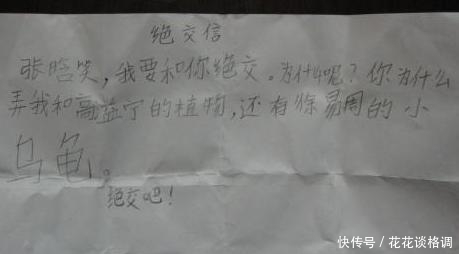 绝交信
张晗笑，我要和你绝交。为什么呢？你为什么
弄我和高益宁的植物，还有徐易周的小
乌龟。
绝交吧！
快传号／花花谈格调